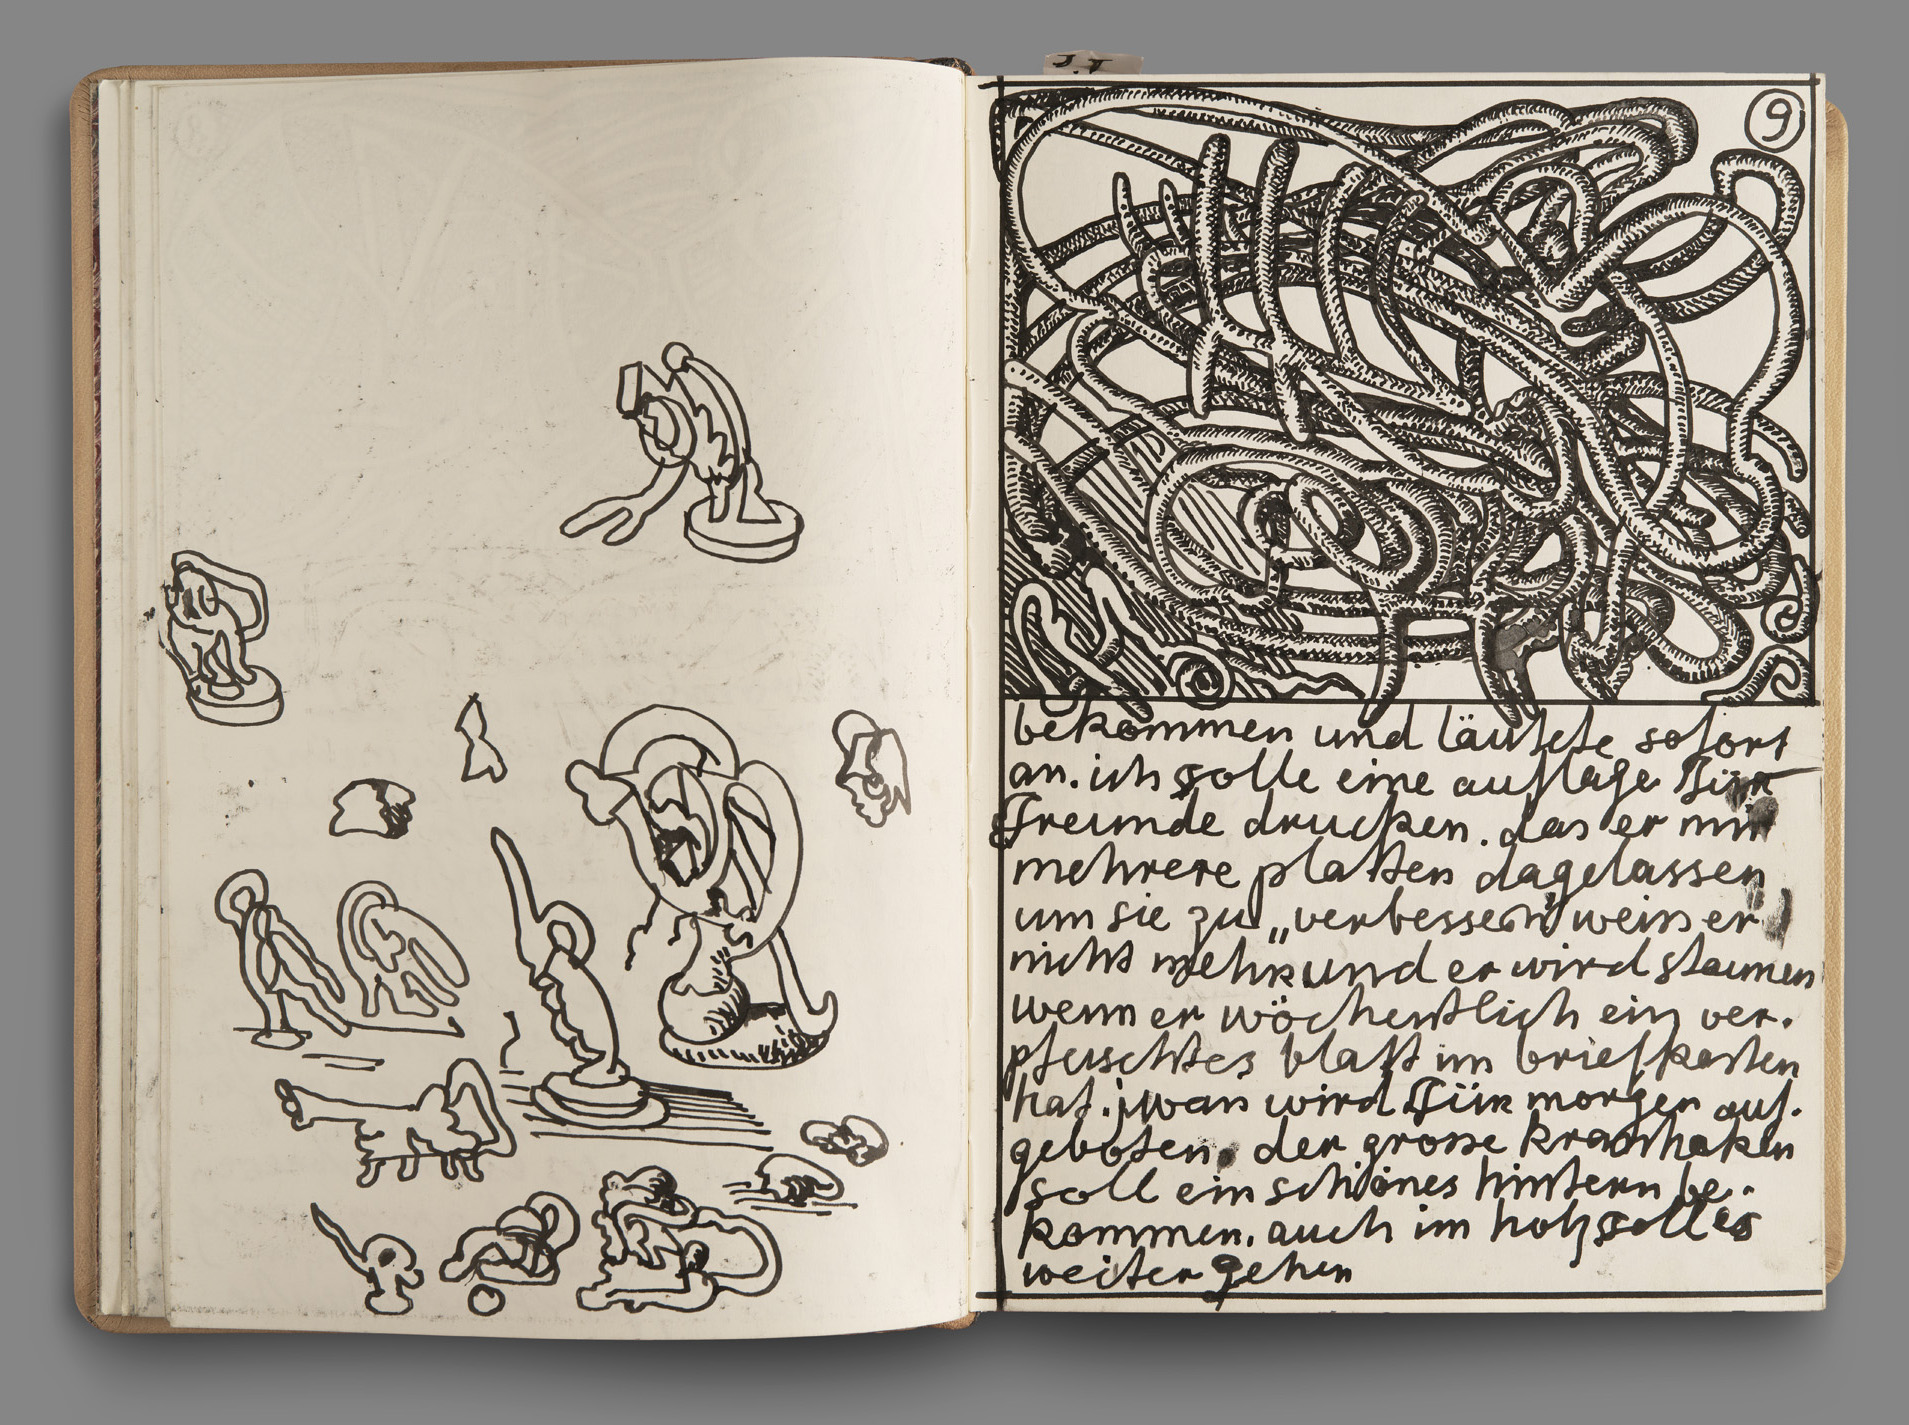 9
bekommen und läutete sofort
an. ich solle eine auflage für
freunde drucken. das er mir
mehrere platten dagelassen
um sie zu „verbessern" weiss er
nicht mehr und er wird staunen
wenn er wöchentlich ein ver.
pfuschtes blatt im briefkasten
hat. iwan wird für morgen auf.
geboten. der grosse
soll ein schönes hintern be.
kommen. auch im holz soll es
weiter gehen